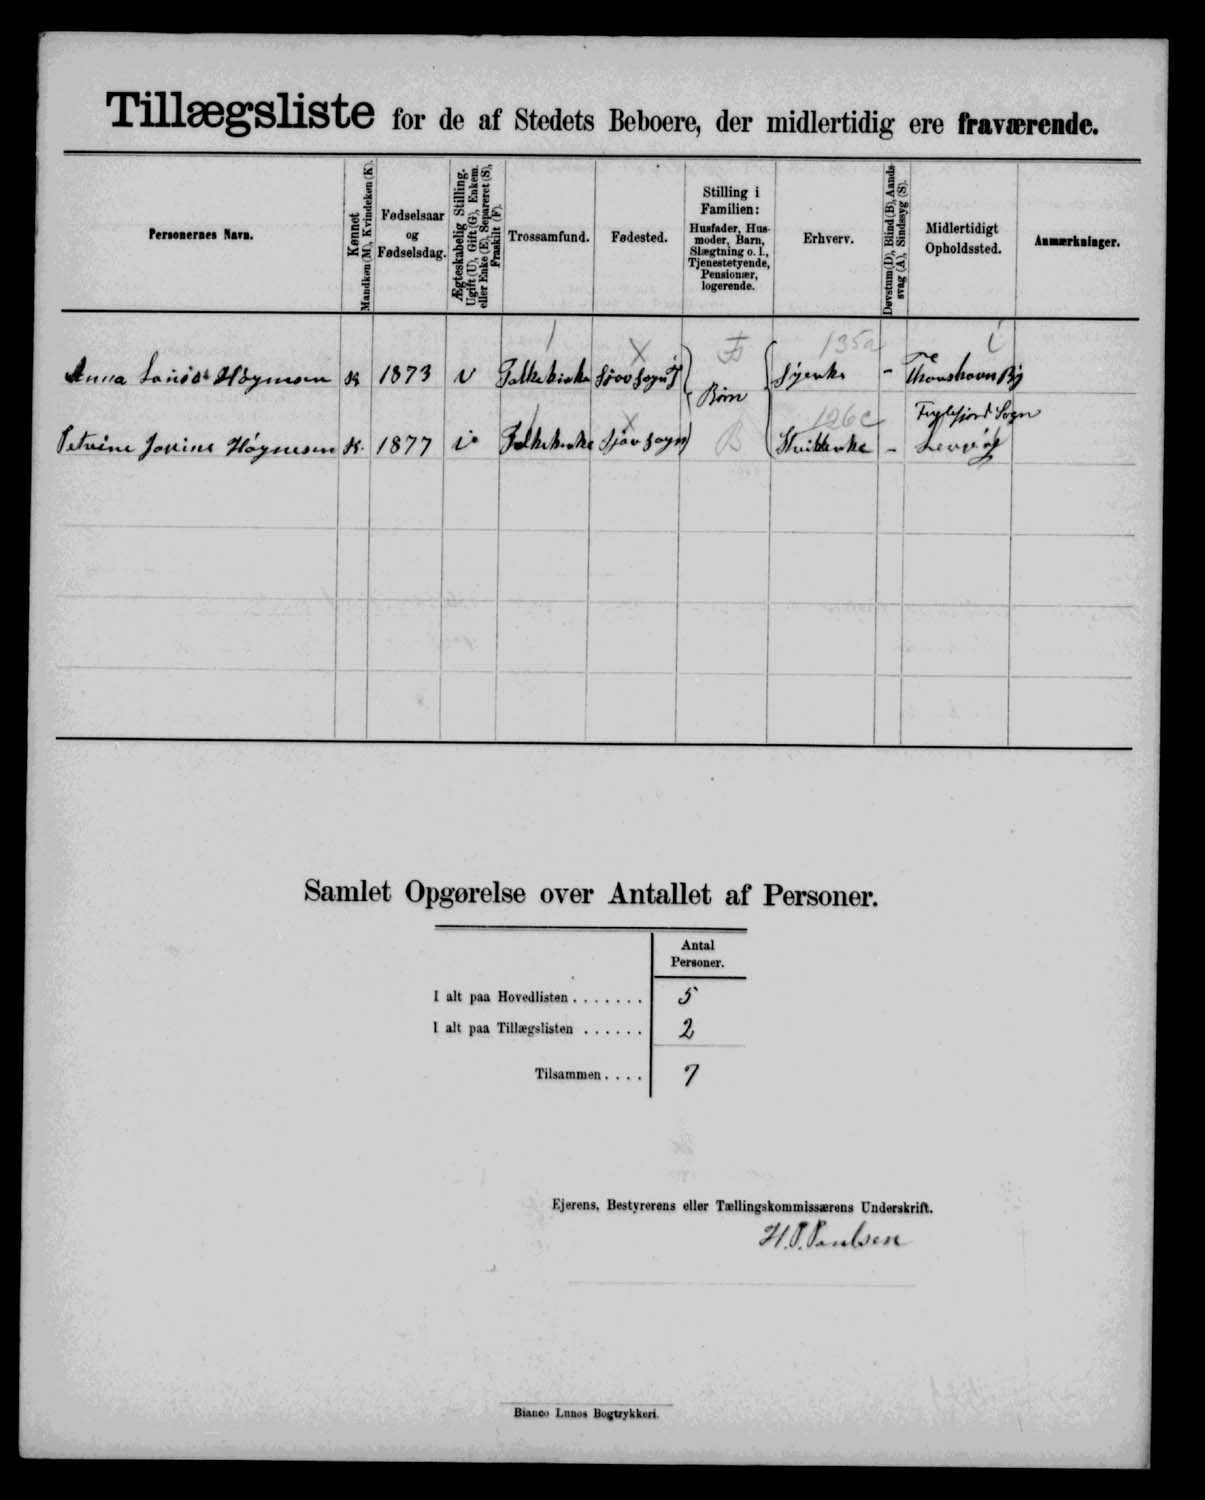 Tillægsliste for de af Stedets Beboere, der midlertidig ere fraværende.
Personernes Navn.
Kønnet
Mandkøn (M), Kvindekøn (K).
Fødselsaar
og
Fødselsdag.
Ægteskabelig Stilling.
Ugift (U), Gift (G), Enkem.
eller Enke (E), Separeret (S),
Fraskilt (F).
Trossamfund.
Fødested.
Stilling i
Familien:
Husfader, Hus-
moder, Barn,
Slægtning o. l.,
Tjenestetyende,
Pensionær,
logerende.
Erhverv.
Døvstum (D), Blind (B), Aands-
svag (A), Sindssyg (S).
Midlertidigt
Opholdssted.
Anmærkninger.
135a
Anna Høgnesen K 1873 U Folkekirke Sjov Sogn Syerske - Thorshavn By
Børn
126c
Fuglefjord Sogn
Petrine Høgnesen K. 1877 Folkekirke Sjov Sogn B -
Samlet Opgørelse over Antallet af Personer.
Antal
Personer.
I alt paa Hovedlisten . . . . . . . 5
I alt paa Tillægslisten . . . . . . 2
Tilsammen . . . . 7
Ejerens, Bestyrerens eller Tællingskommissærens Underskrift.
H. P. Poulsen
Bianco Lunos Bogtrykkeri.